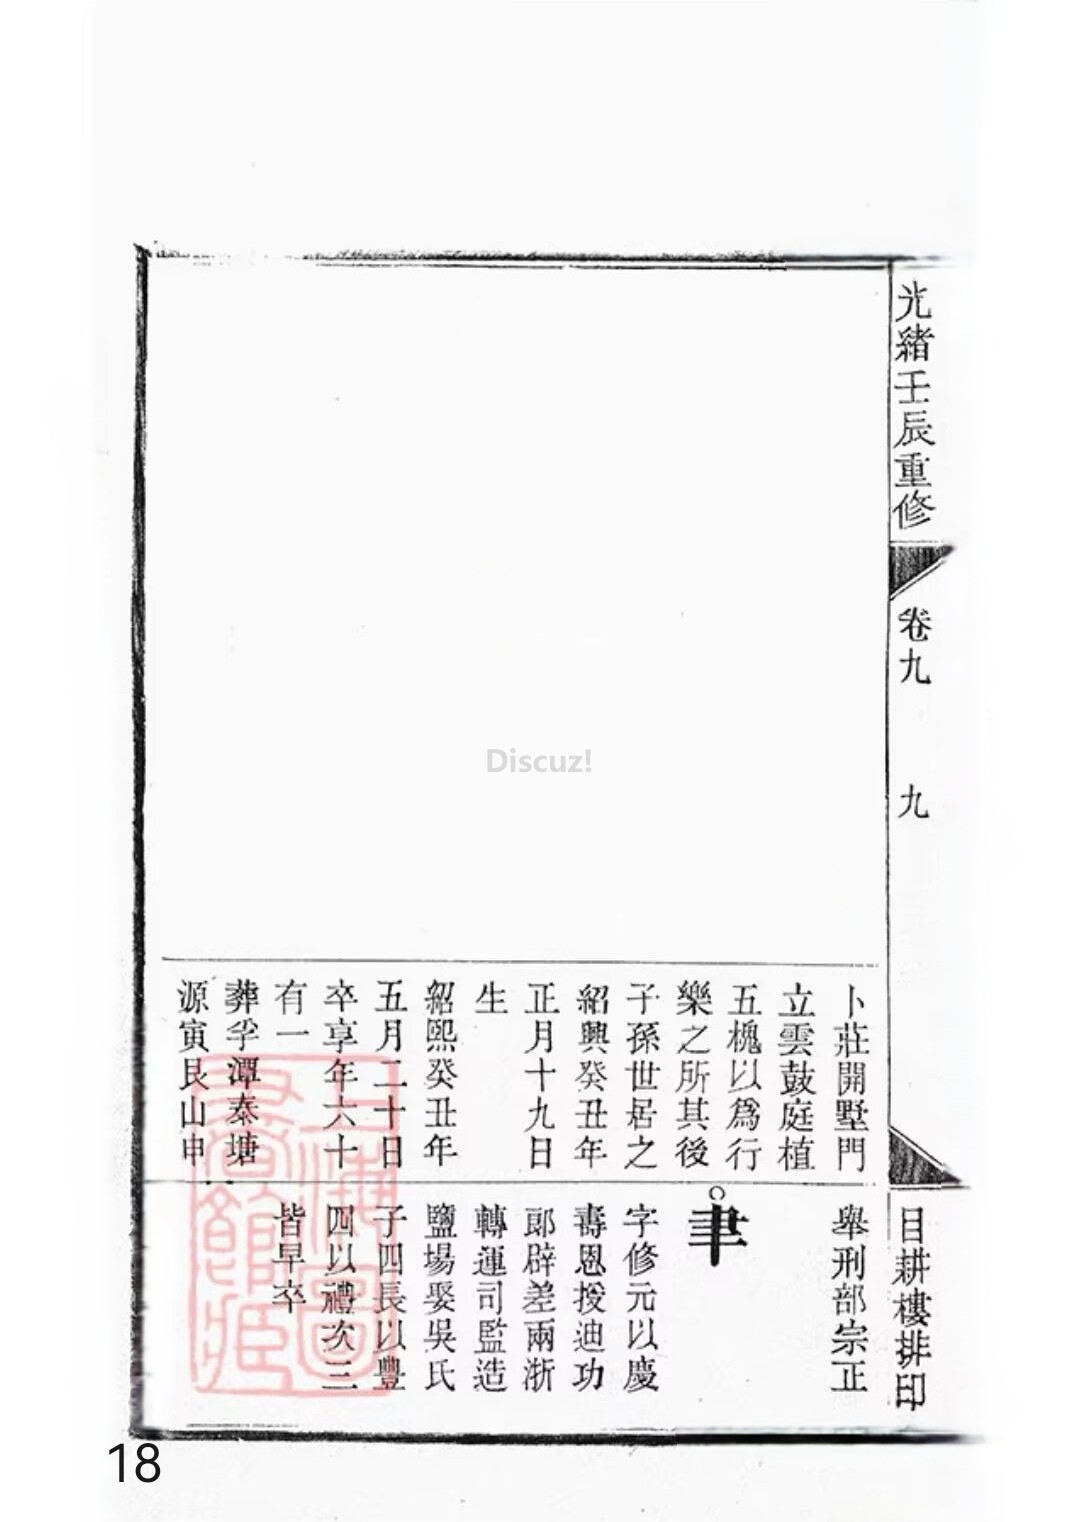 光緒壬辰重修
卷九
九
目耕樓排印
卜莊開墅門
立雲鼓庭植
五槐以為行
樂之所其後
子孫世居之
紹興癸丑年
正月十九日
生
紹熙癸丑年
五月二十日
卒享年六十
有一
葬孚潭泰塘
源寅艮山申
舉刑部宗正
聿
字修元以慶
壽恩授迪功
郎辟差兩浙
轉運司監造
鹽場娶吳氏
子四長以豐
四以禮次三
皆早卒
上海圖書館藏
Discuz!
18